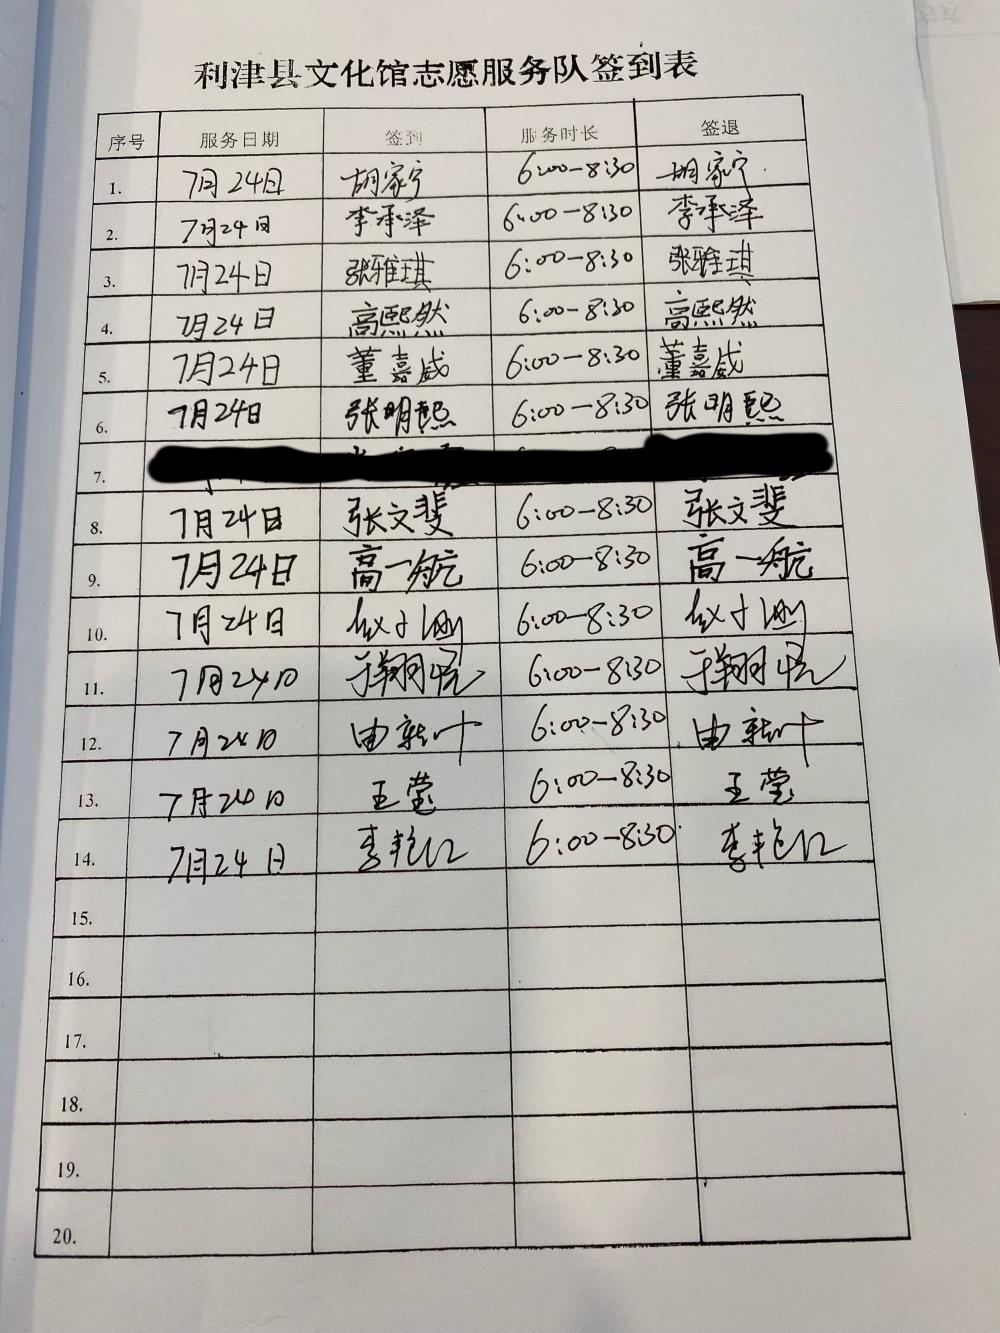 利津县文化馆志愿服务队签到表
序号 服务日期 签到 服务时长 签退
1. 7月24日 胡家宁 6:00-8:30 胡家宁
2. 7月24日 李承泽 6:00-8:30 李承泽
3. 7月24日 张雅琪 6:00-8:30 张雅琪
4. 7月24日 高熙然 6:00-8:30 高熙然
5. 7月24日 董嘉威 6:00-8:30 董嘉威
6. 7月24日 张明熙 6:00-8:30 张明熙
7.
8. 7月24日 张文斐 6:00-8:30 张文斐
9. 7月24日 高一航 6:00-8:30 高一航
10. 7月24日 6:00-8:30
11. 7月24日 于翔 6:00-8:30 于翔
12. 7月24日 由 叶 6:00-8:30 由 叶
13. 7月24日 王莹 6:00-8:30 王莹
14. 7月24日 李艳红 6:00-8:30 李艳红
15.
16.
17.
18.
19.
20.